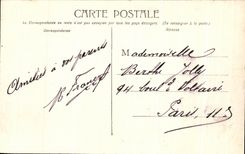 CARTE POSTALE
La Correspondance au recto n'est pas acceptée par tous les pays étrangers.
(Se renseigner à la poste)
Correspondance
Adresse
Amitiés à vos parents
Mademoiselle
Berthe Jolly
94 Boul. Voltaire
Paris 11